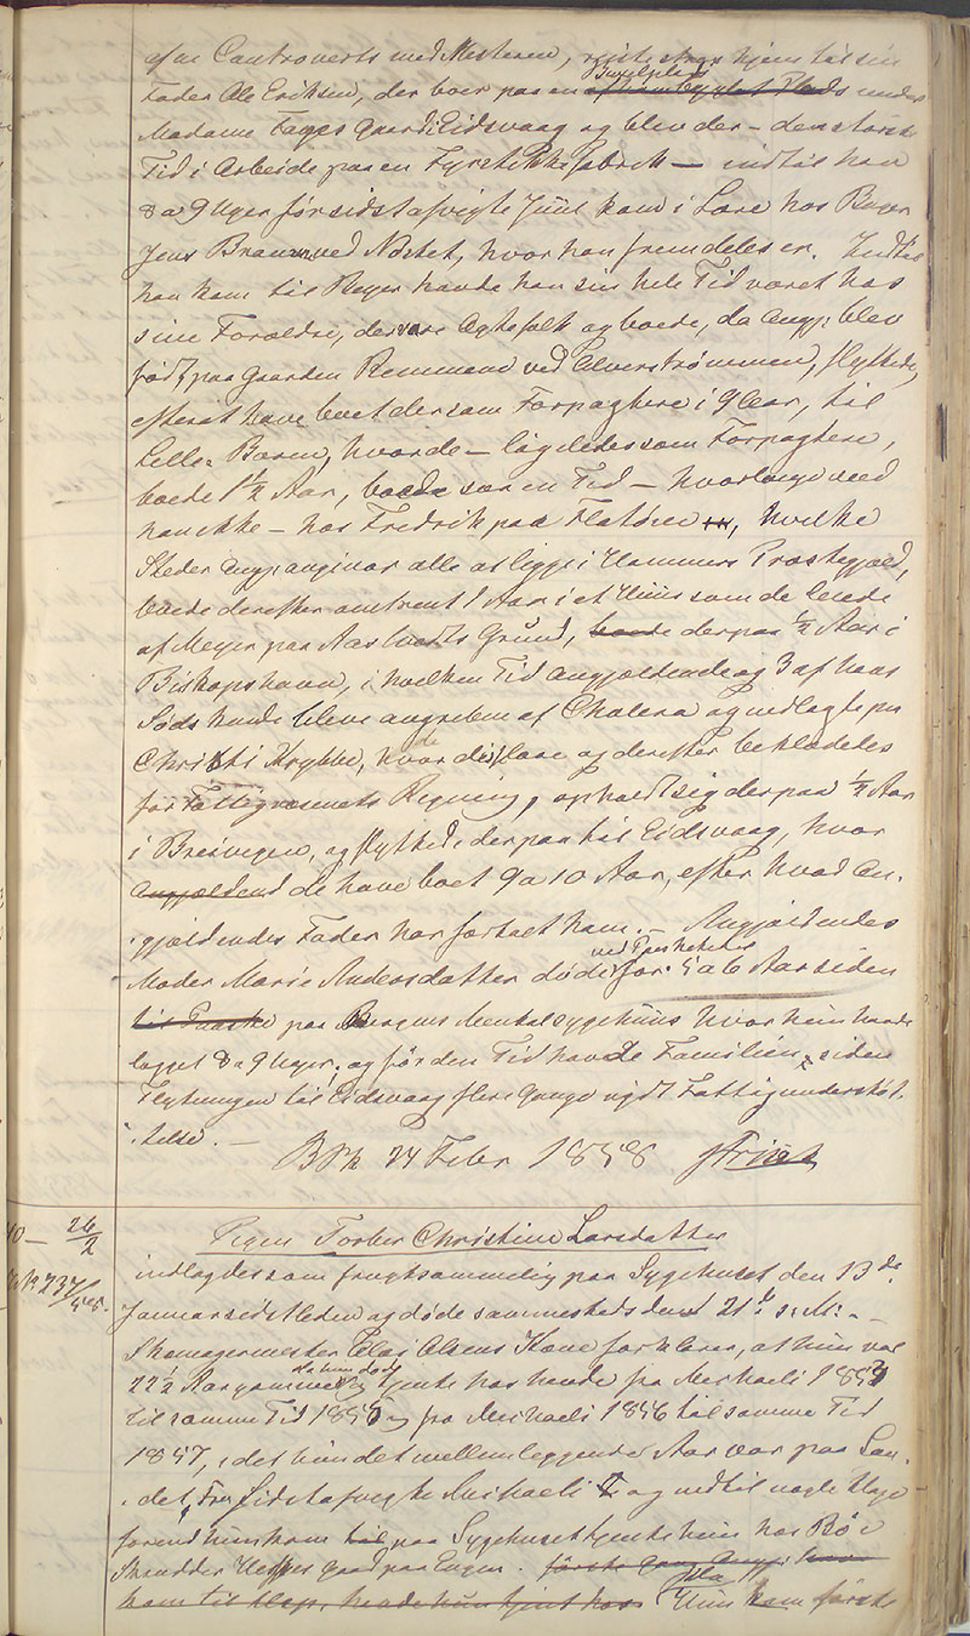 af en Controvers med Mesteren, reiste strax hjem til sin
Indelplads
Fader Ole Eriksen, der boer paa en Plads under
Madame Fayes Gaard i Eidsvaag og blev der – den største
Tid i Arbeide paa en Fyrstikkefabrik — indtil han
8 a 9 Uger før sidstafvigte Juul kom i Lære hos Bager
Jens Braun ved Nøstet, hvor han fremdeles er. Indtil
han kom til Reyer havde han sin hele Tid været hos
sine Forældre, der vare Ægtefolk og boede, da Angj: blev
født, paa Gaarden Remmene ved Alverstrømmen, flyttede,
efterat have boet der som Forpagtere i 9 Aar, til
Lille Boren, hvor de – ligeledes som Forpagtere,
boede 1½ Aar, boede saa en Tid – hvorlænge veed
han ikke – hos Fredrik paa Flatøen, hvilke
Steder Angj. angiver alle at ligge i Hammers Præstegjæld,
boede derefter omtrent 1 Aar i et Huus som de leiede
af Meyer paa Aastvedts Grund, boede derpaa ½ Aar i
Biskopshavn, i hvilken Tid Angjældende og 3 af hans
Sødskende bleve angrebne af Cholera og indlagte paa
Christi Krybbe, hvor de laae og derefter beklædedes
for Fattigvæsenets Regning, opholdt sig derpaa ½ Aar
i Breivigen, og flyttede derpaa til Eidsvaag, hvor
Angjældend de have boet 9 a 10 Aar, efter hvad An-
gjældendes Fader har fortalt ham. – Angjældendes
ved Paasketider
Moder Marie Andersdatter døde for 5 a 6 Aar siden
til Paaske paa Bergens Mentalsygehuus hvor hun havde
ligget 8 a 9 Uger, og før den Tid havde Familien, siden
Flytningen til Eidsvaag flere Gange nydt Fattigunderstøt-
telse. —
BPk 24 Febr 1858
40 – 26/2
Pigen Torber Christine Larsdatter
indlagdes som frugtsommelig paa Sygehuset den 13de
Januar sidstleden og døde sammesteds den 21de s: M: –
Skomagermester Elias Olsens Kone forklarer, at hun var
da hun døde
22½ Aar gammel og tjente hos hende fra Michaeli 1853
til samme Tid 1855 og fra Michaeli 1856 til samme Tid
1857, idet hun det mellemliggende Aar var paa Lan-
det, Fra Sidstafvigte Michaeli og indtil nogle Dage
forend hun kom til paa Sygehuset tjente hun hos
Skrædder Gaard paa Engen. første Gang Angj: havde
kom til Dep. havde hun tjent hos Hun kom første